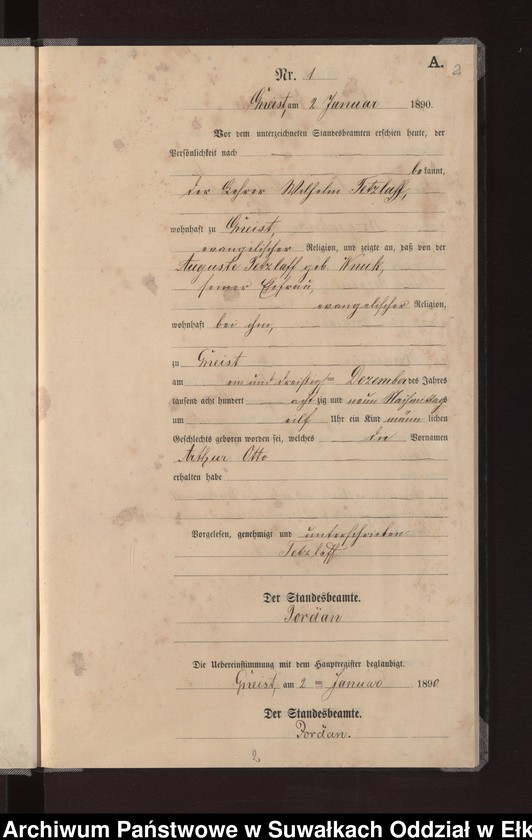 A.
2
Nr. 1
Gneist, am 2 Januar 1890.
Vor dem unterzeichneten Standesbeamten erschien heute, der
Persönlichkeit nach
bekannt,
der Lehrer Wilhelm Tetzlaff,
wohnhaft zu Gneist,
evangelischer Religion, und zeigte an, daß von der
Auguste Tetzlaff geb. Knuk,
seiner Ehefrau,
evangelischer Religion,
wohnhaft bei ihm,
zu Gneist
am ein und dreißigsten Dezember des Jahres
tausend acht hundert achtzig und neun Nachmittags
um eilf Uhr ein Kind männlichen
Geschlechts geboren worden sei, welches die Vornamen
Arthur Otto
erhalten habe
Vorgelesen, genehmigt und unterschrieben
Tetzlaff
Der Standesbeamte.
Jordan
Die Uebereinstimmung mit dem Hauptregister beglaubigt.
Gneist, am 2 ten Januar 1890
Der Standesbeamte.
Jordan.
2
Archiwum Państwowe w Suwałkach Oddział w Ełk